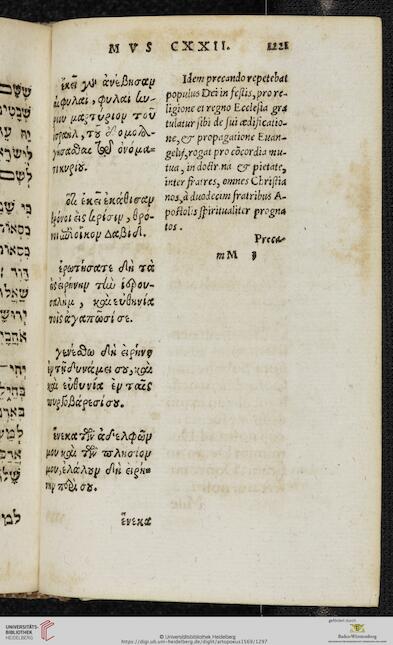 MVS CXXII.
ἐκεῖ γὰρ ἀνέβησαν
αἱ φυλαὶ, φυλαὶ κυ-
ρίου μαρτύριον τοῦ
ἰσραὴλ, τοῦ ἐξομολο-
γήσασθαι τῷ ὀνόμα-
τι κυρίου.
ὅτι ἐκεῖ ἐκάθισαν
θρόνοι εἰς κρίσιν, θρό-
νοι ἐπὶ οἶκον Δαβίδ.
ἐρωτήσατε δὴ τὰ
εἰς εἰρήνην τὴν ἱερου-
σαλὴμ, καὶ εὐθηνία
τοῖς ἀγαπῶσί σε.
γενέσθω δὴ εἰρήνη
ἐν τῇ δυνάμει σου, καὶ
καὶ εὐθυνία ἐν ταῖς
πυργοβάρεσί σου.
ἕνεκα τῶν ἀδελφῶν
μου καὶ τῶν πλησίον
μου, ἐλάλουν δὴ εἰρή-
νην περὶ σου.
ἕνεκα
Idem precando repetebat
populus Dei in festis, pro re-
ligione et regno Ecclesia gra
tulatur sibi de sui ædificatio-
ne, & propagatione Euan-
gelij, rogat pro cōcordia mu-
tua, in doctrina & pietate,
inter fratres, omnes Christia
nos, à duodecim fratribus A-
postolis spiritualiter progna
tos.
Preca-
mM
שָׁשָּׁם
שִׁבְטֵי
יָהּ עֵ
לְיִשְׂרָא
לְשֵׁם
כִּי שָׁ
כִּסְאוֹת
כִּסְאוֹ
דָּוִד
שַׁאֲלוּ
יְרוּשָׁ
אֹהֲבָ
יְהִי
בְּחֵילֵ
בְּאַרְמְ
לְמַעַ
UNIVERSITÄTS-
BIBLIOTHEK
HEIDELBERG
© Universitätsbibliothek Heidelberg
https://digi.ub.uni-heidelberg.de/diglit/artopoeus1569/1297
gefördert durch
Baden-Württemberg